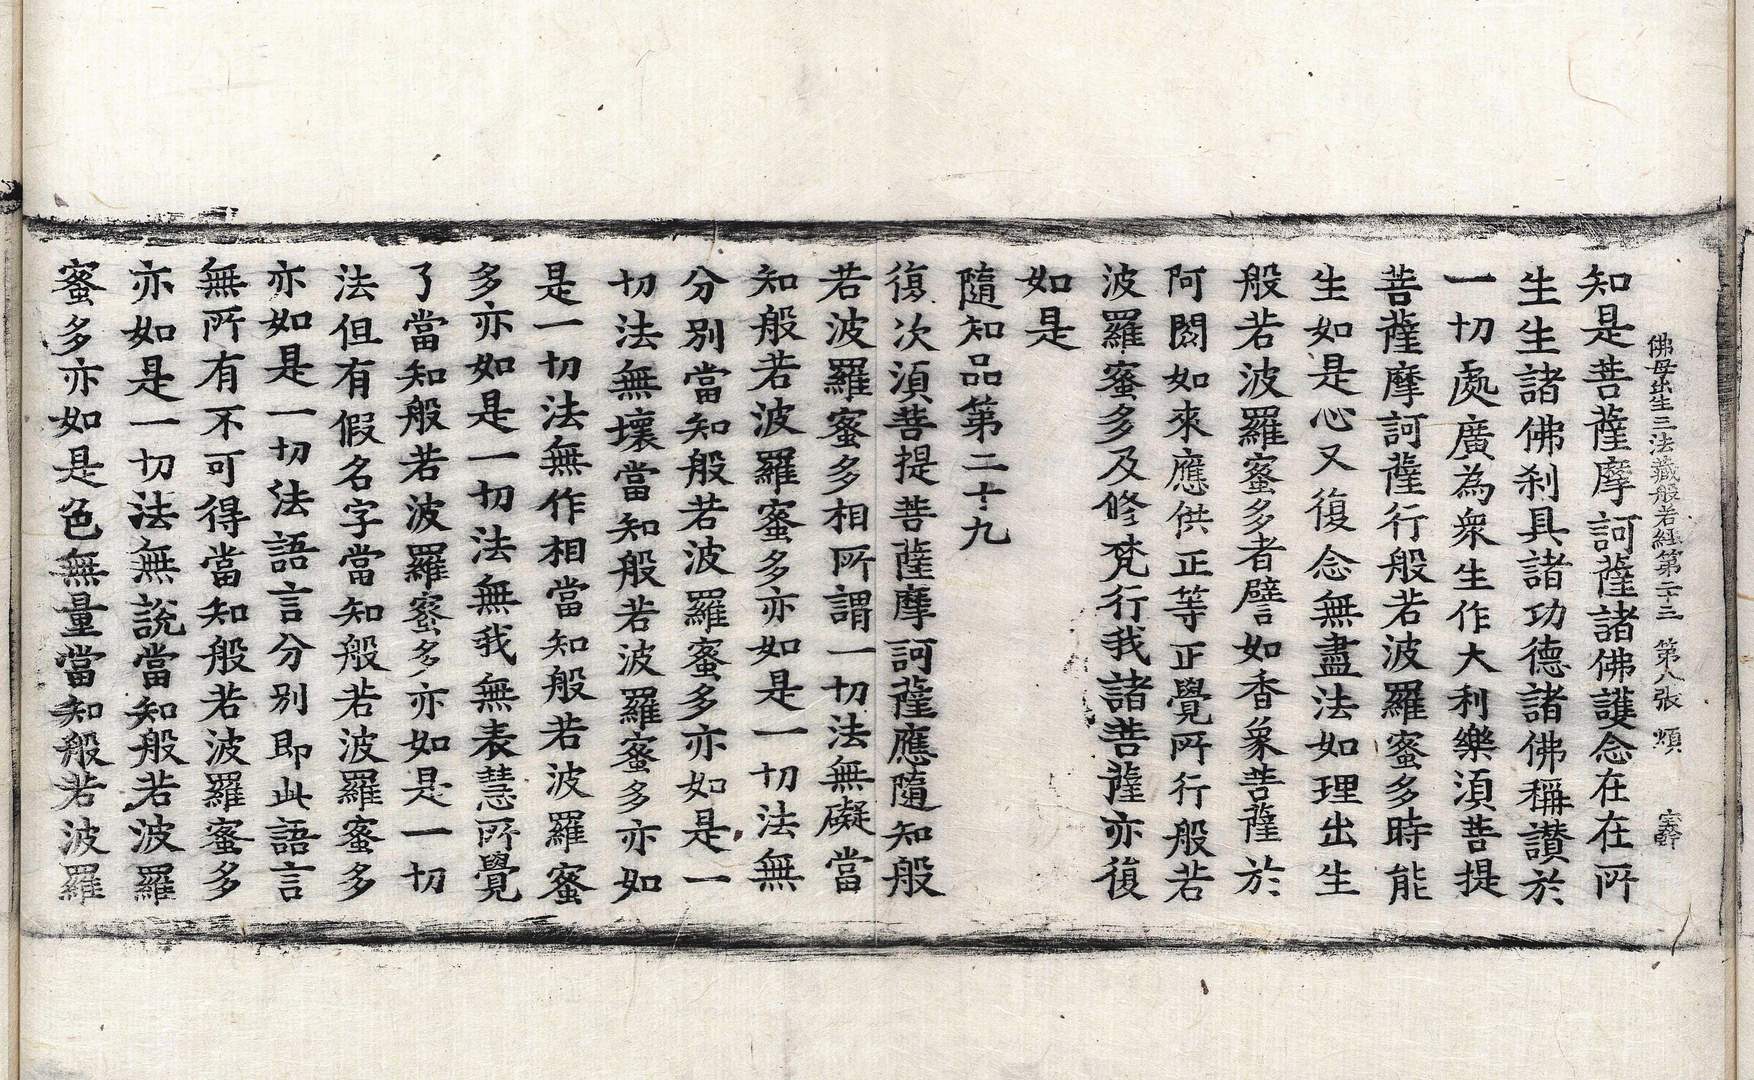 佛母出生三法藏般若經第二十三 第八張 煩
知是菩薩摩訶薩諸佛護念在在所
生生諸佛剎具諸功德諸佛稱讃於
一切處廣為衆生作大利樂湏菩提
菩薩摩訶薩行般若波羅蜜多時能
生如是心又復念無盡法如理出生
般若波羅蜜多者譬如香象菩薩於
阿閦如來應供正等正覺所行般若
波羅蜜多及修梵行我諸菩薩亦復
如是
隨知品第二十九
復次湏菩提菩薩摩訶薩應隨知般
若波羅蜜多相所謂一切法無礙當
知般若波羅蜜多亦如是一切法無
分別當知般若波羅蜜多亦如是一
切法無壞當知般若波羅蜜多亦如
是一切法無作相當知般若波羅蜜
多亦如是一切法無我無表慧所覺
了當知般若波羅蜜多亦如是一切
法但有假名字當知般若波羅蜜多
亦如是一切法語言分別即此語言
無所有不可得當知般若波羅蜜多
亦如是一切法無說當知般若波羅
蜜多亦如是色無量當知般若波羅